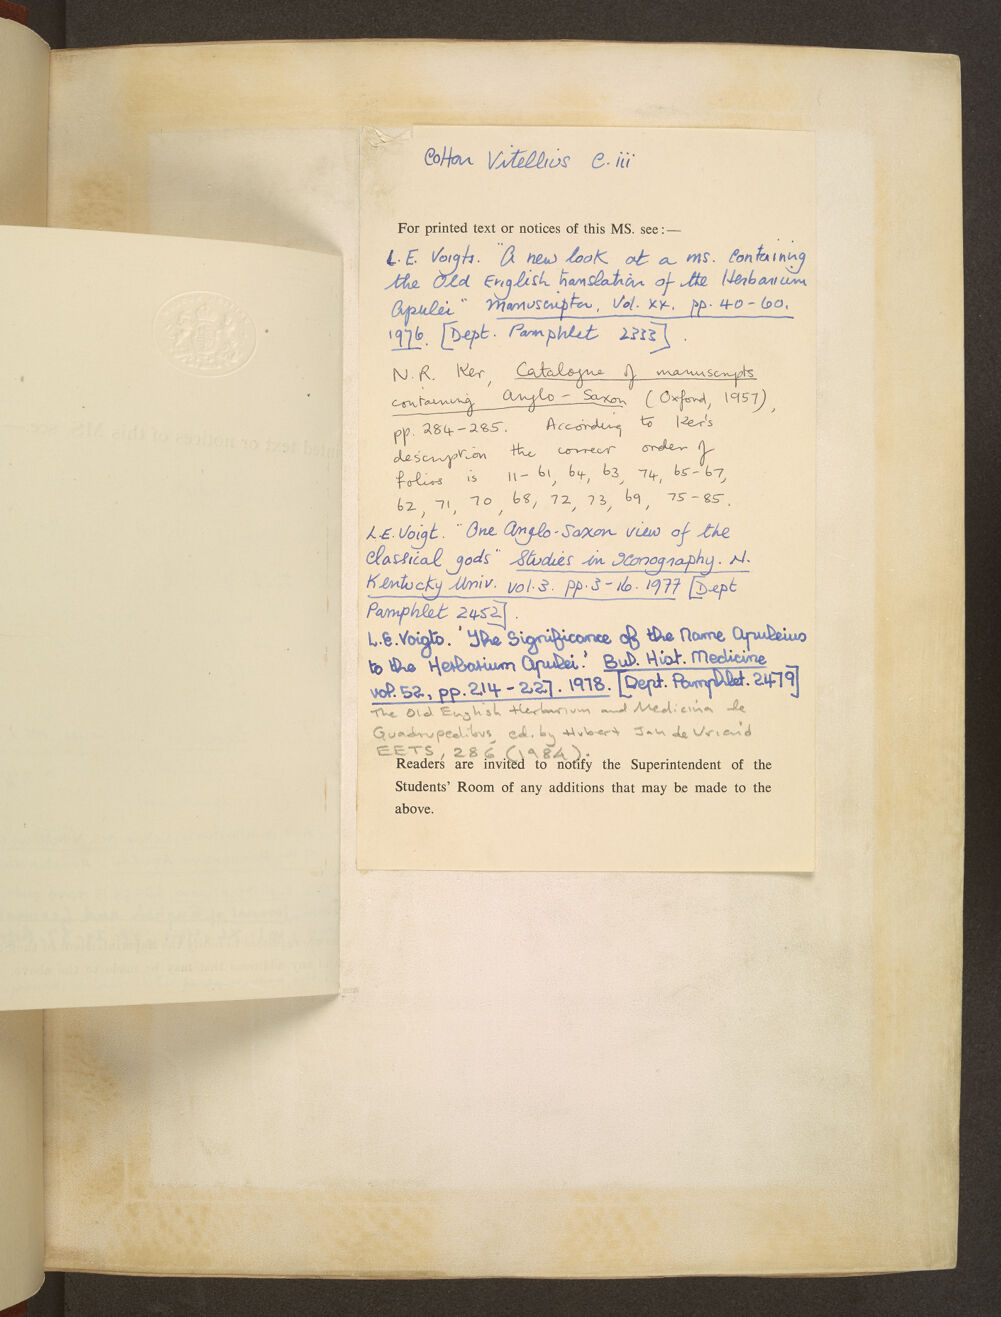 Cotton Vitellius C. iii
For printed text or notices of this MS. see :—
L. E. Voigts. "A new look at a ms. containing
the Old English translation of the Herbarium
Apulei" Manuscripta, Vol. XX. pp. 40-60.
1976. [Dept. Pamphlet 2333].
N. R. Ker, Catalogue of manuscripts
containing Anglo-Saxon (Oxford, 1957),
pp. 284-285. According to Ker's
description the correct order of
folios is 11-61, 64, 63, 74, 65-67,
62, 71, 70, 68, 72, 73, 69, 75-85.
L.E. Voigt. "One Anglo-Saxon view of the
classical gods" Studies in Iconography. N.
Kentucky Univ. vol. 3. pp. 3-16. 1977 [Dept
Pamphlet 2452].
L.E. Voigts. 'The Significance of the Name Apuleius
to the Herbarium Apulei.' Bull. Hist. Medicine
vol. 52, pp. 214-227. 1978. [Dept. Pamphlet. 2479]
The Old English Herbarium and Medicina de
Quadrupedibus, ed. by Hubert Jan de Vriend
EETS, 286 (1984).
Readers are invited to notify the Superintendent of the
Students' Room of any additions that may be made to the
above.